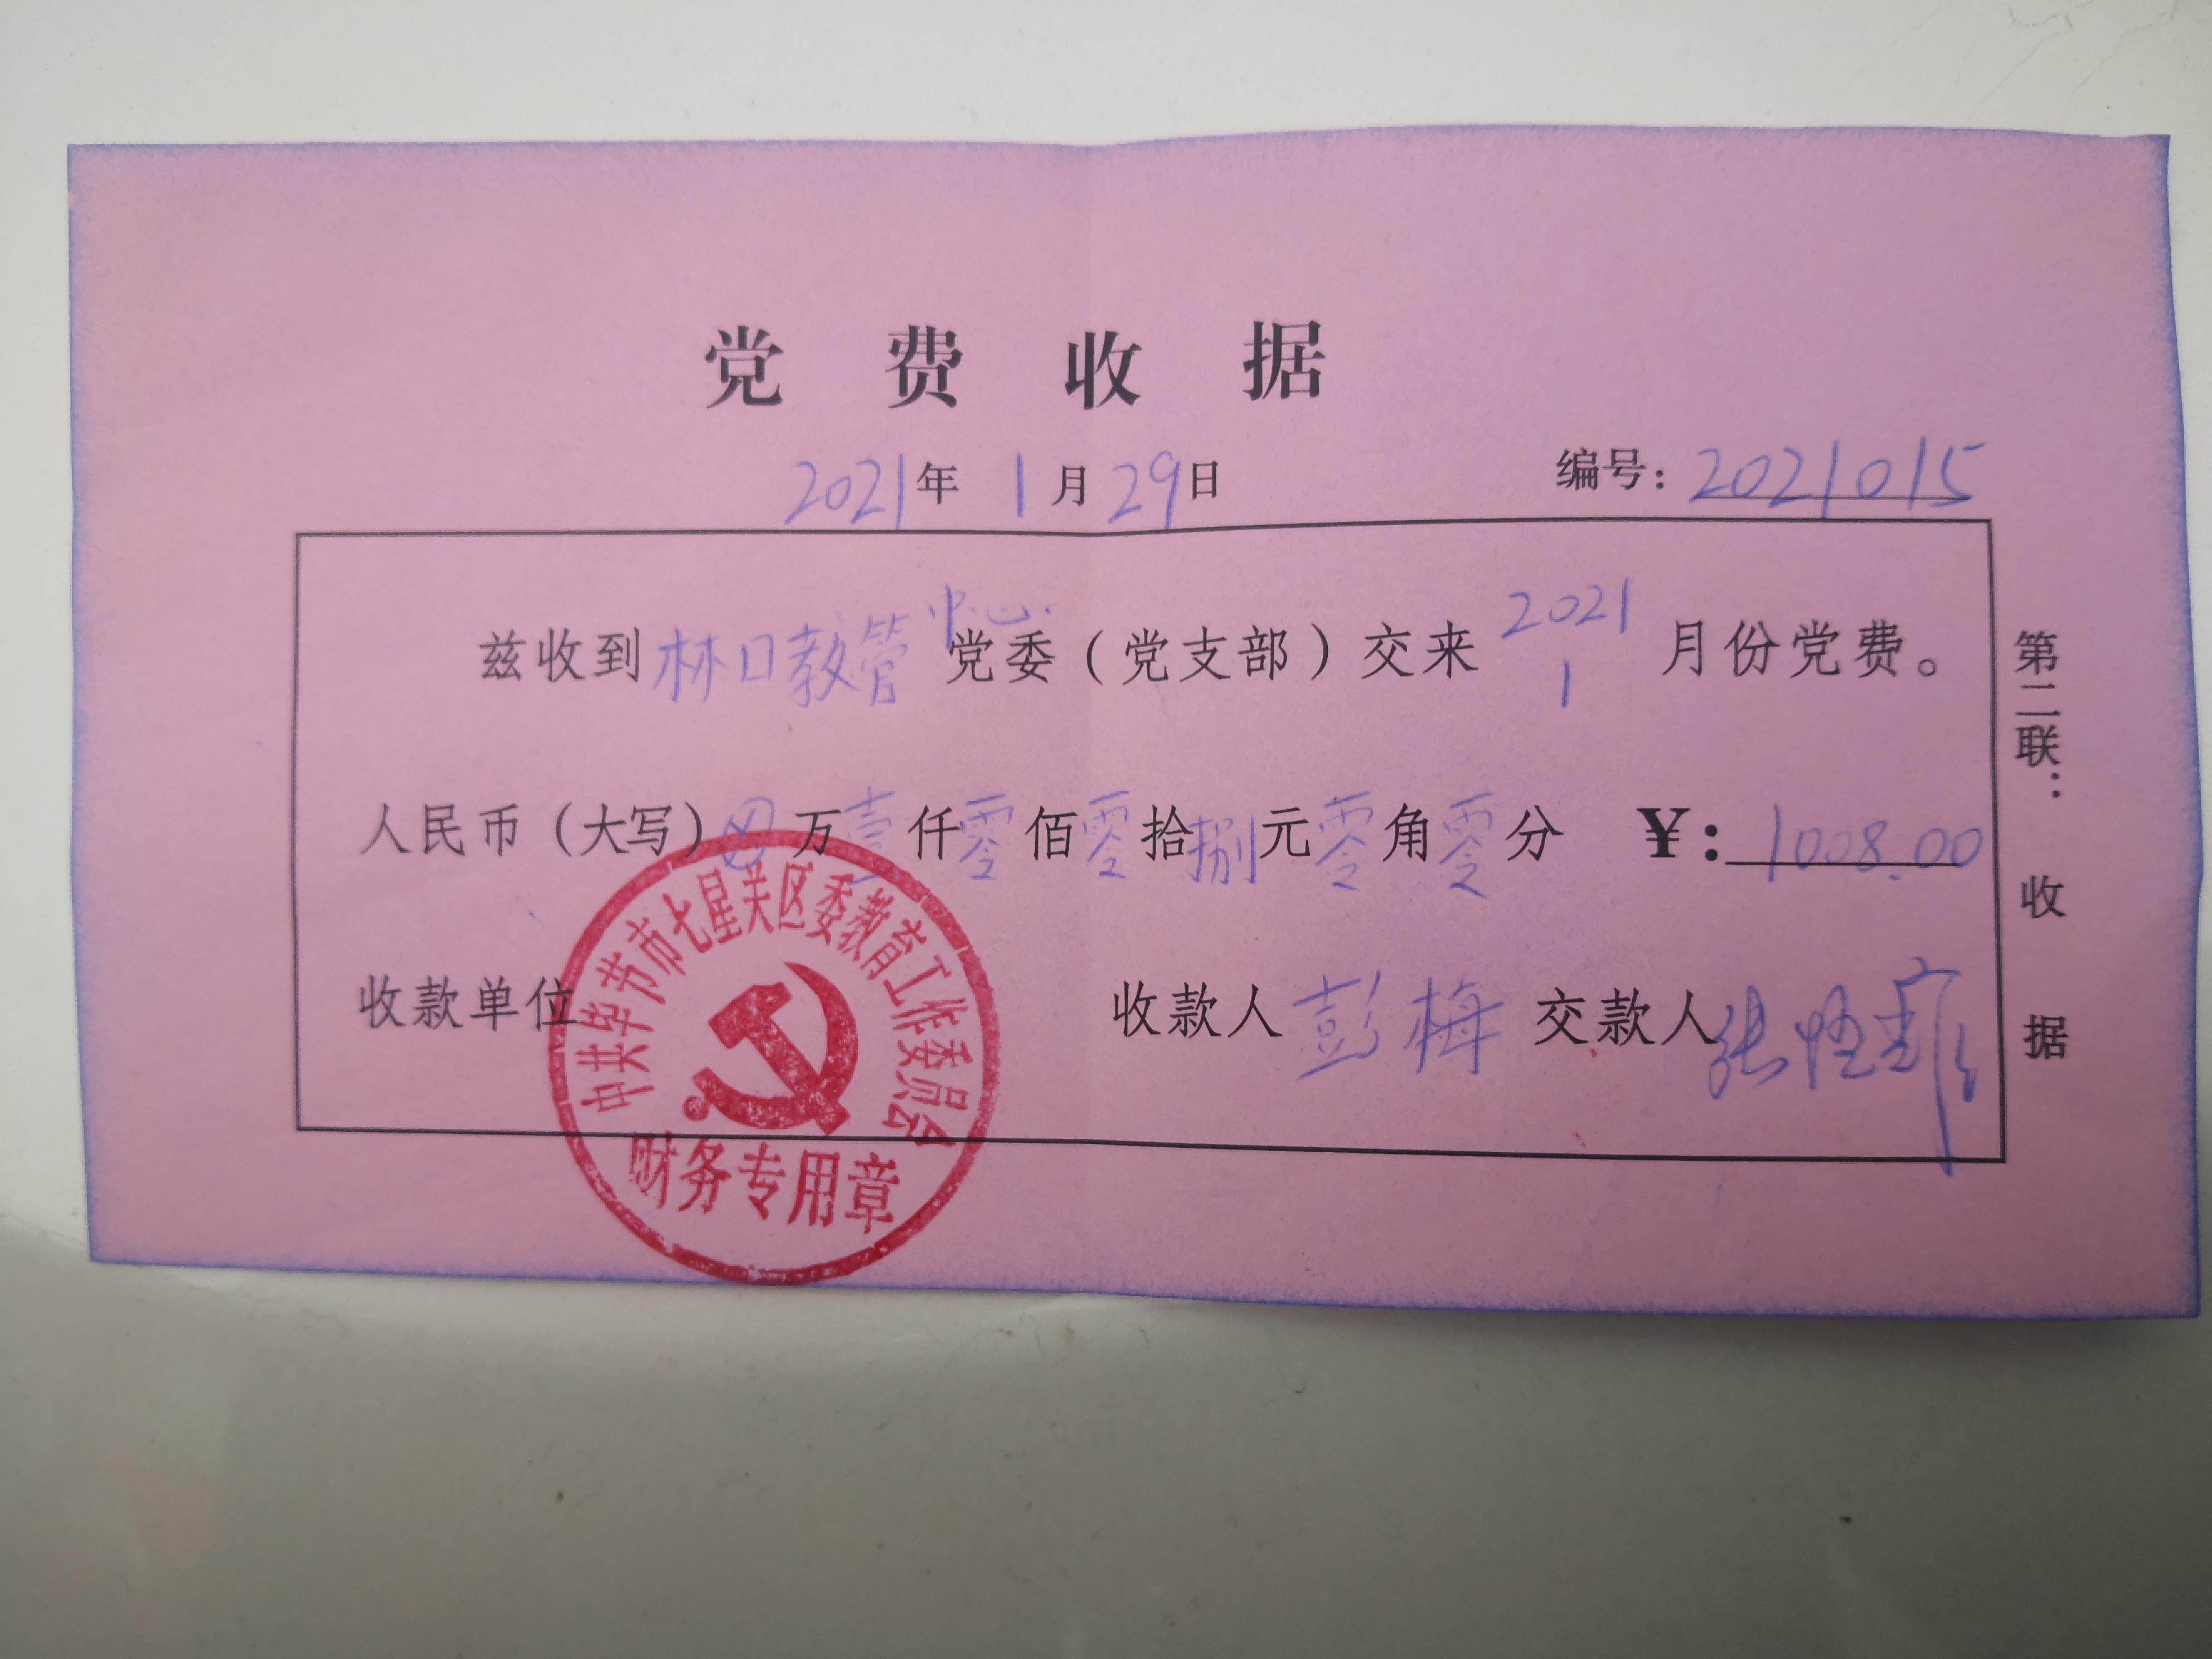 党费收据
2021年 1月29日 编号：2021015
兹收到林口教管中心党委（党支部）交来2021 1月份党费。
人民币（大写）⊗万壹仟零佰零拾捌元零角零分 ￥：1008.00
收款单位 收款人彭梅 交款人张
中共毕节市七星关区委教育工作委员会
财务专用章
第二联：收据